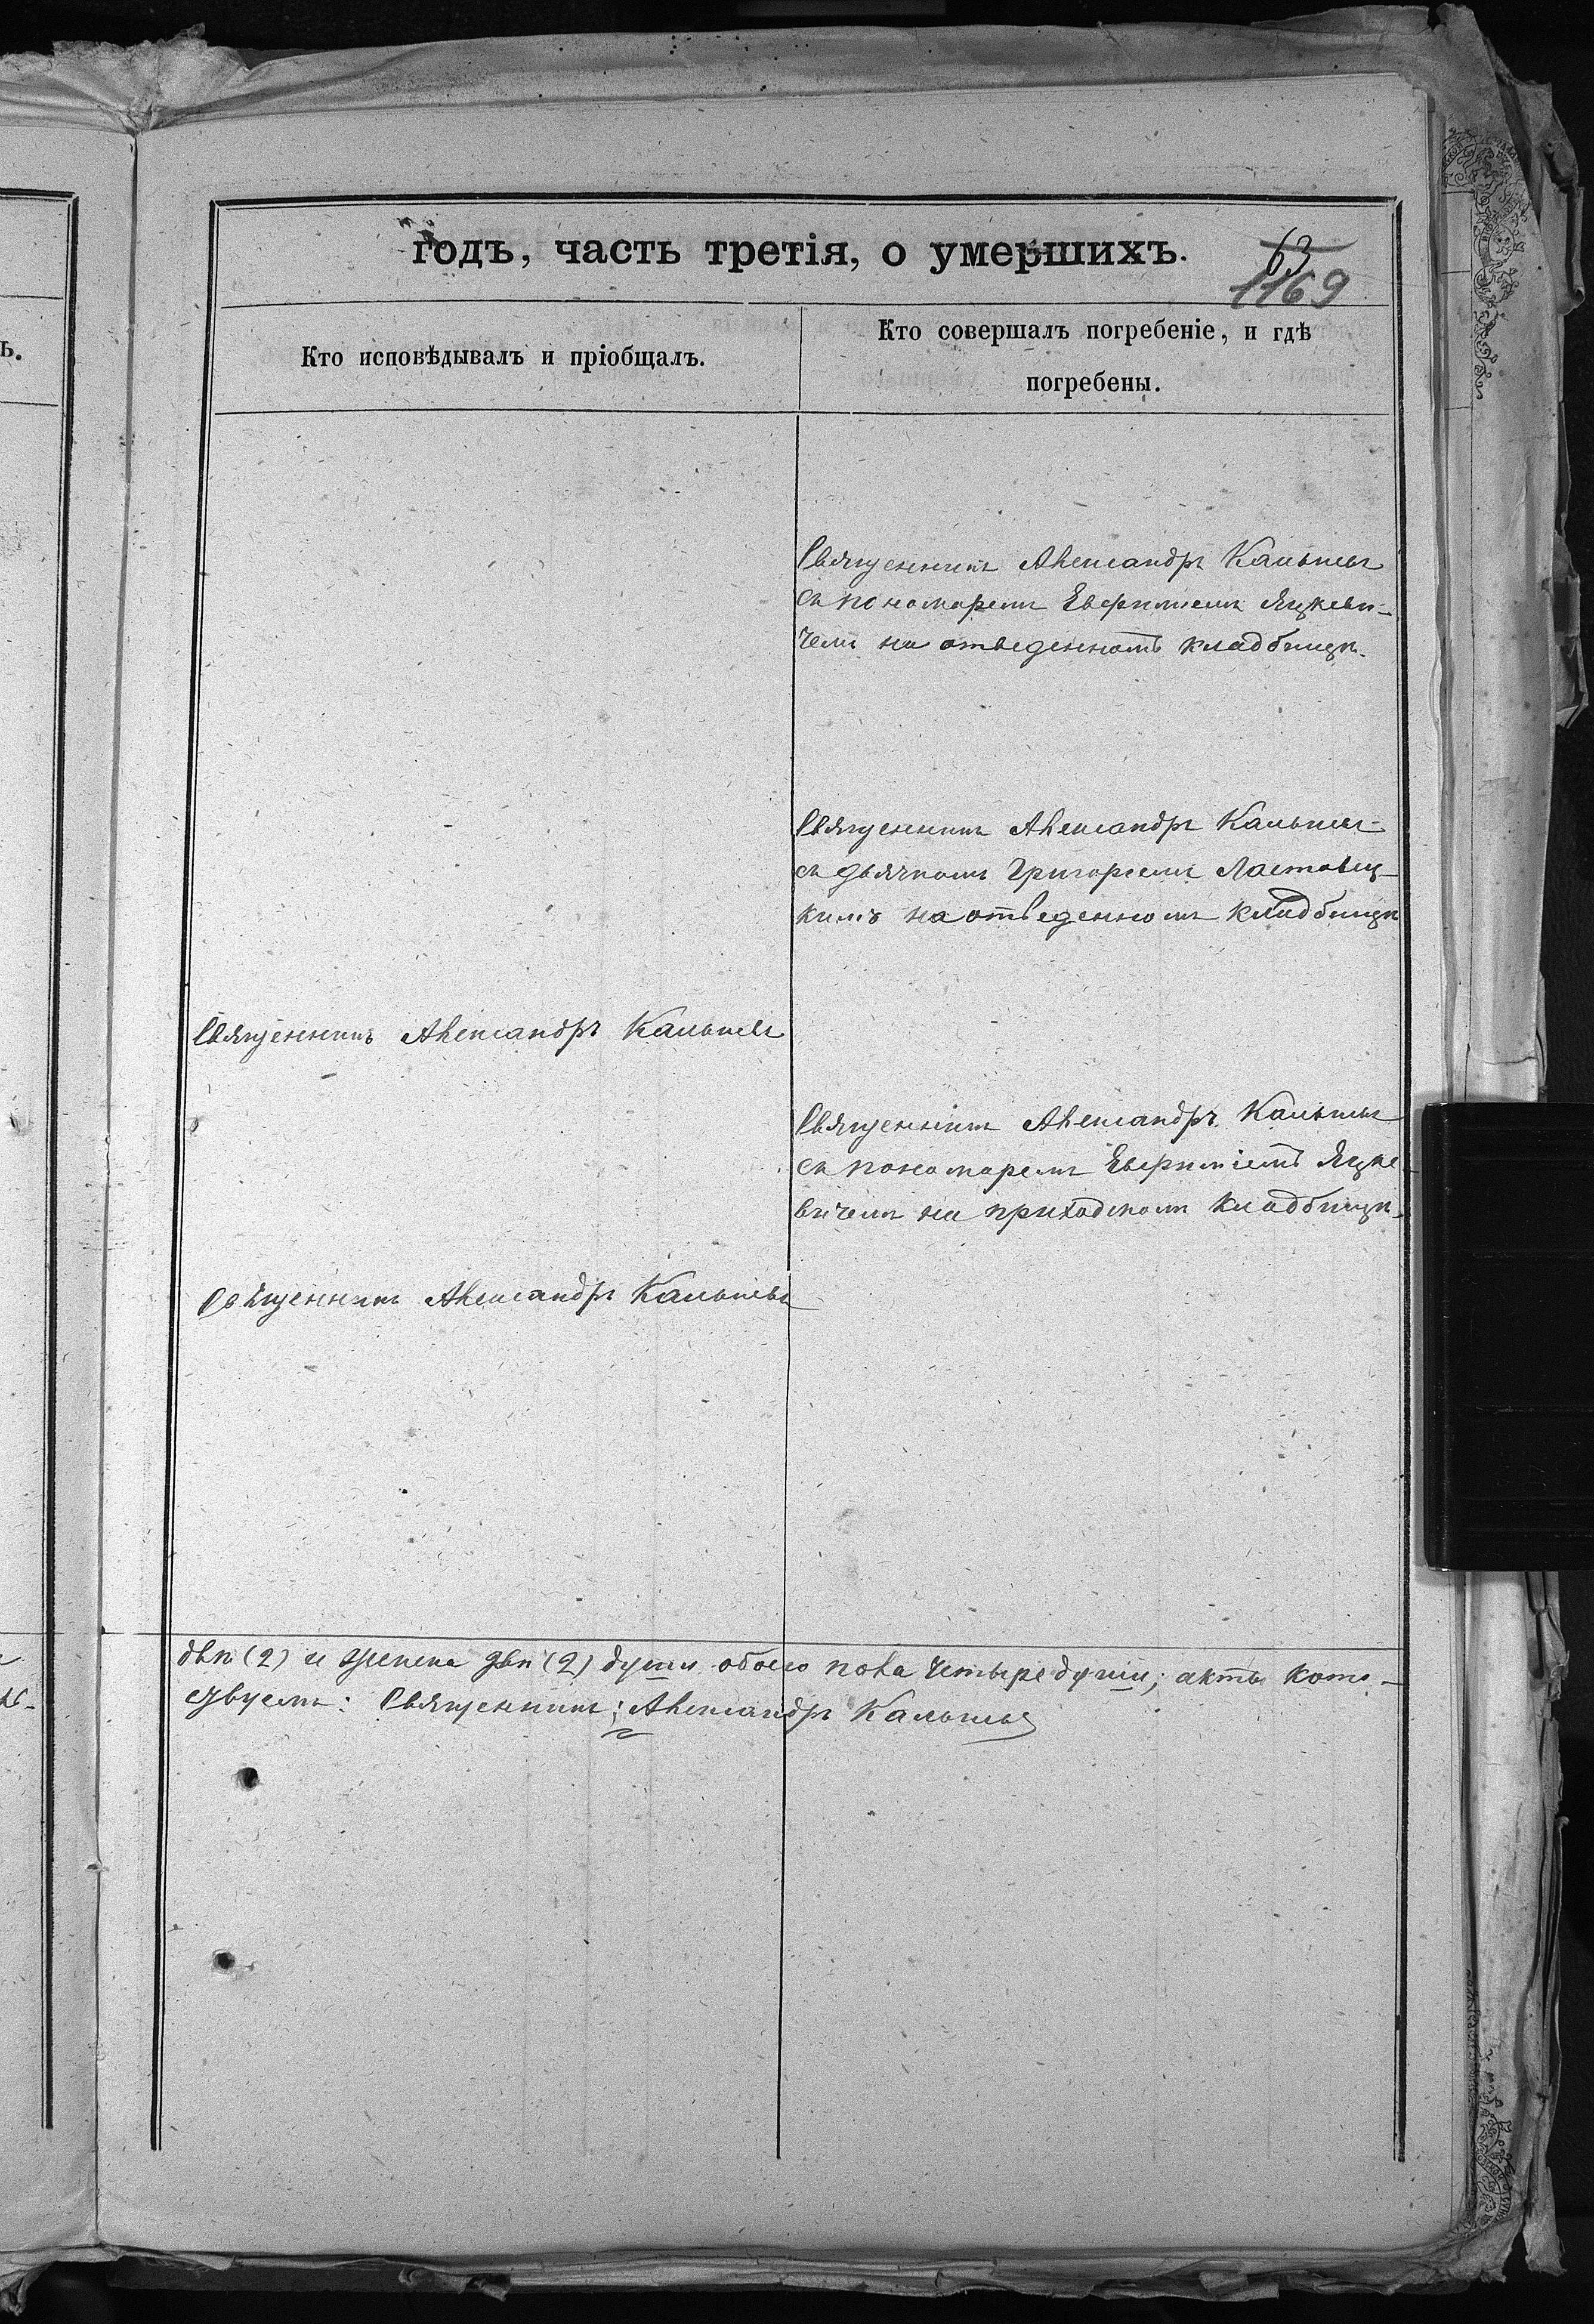 годъ, часть третія, о умершихъ.
63
1169
Кто исповѣдывалъ и пріобщалъ.
Кто совершалъ погребеніе, и гдѣ
погребены.
Священникъ Александръ Кальневъ
съ пономаремъ Евфиміемъ Яцкеви-
чемъ на отведенномъ кладбищѣ.
Священникъ Александръ Кальневъ
съ дьячкомъ Григоріемъ Ластовец-
кимъ на отведенномъ кладбищѣ
Священникъ Александръ Кальневъ
Священникъ Александръ Кальневъ
съ пономаремъ Евфиміемъ Яцке-
вичемъ на приходскомъ кладбищѣ.
Священникъ Александръ Кальневъ
двѣ (2) и женска двѣ (2) души обоего пола четыре души; акты кото-
Священникъ: Александръ Кальневъ